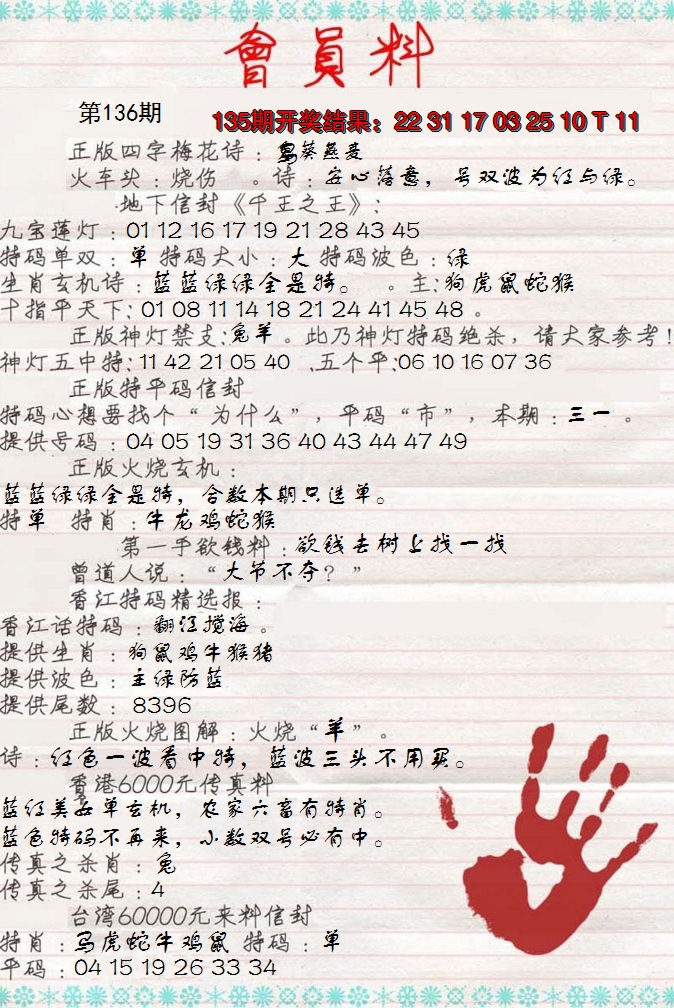 會員料
第136期
135期开奖结果：22 31 17 03 25 10 T 11
正版四字梅花诗：兔葵燕麦
火车头：烧伤 。诗：安心落意，号双波为红与绿。
地下信封《千王之王》：
九宝莲灯：01 12 16 17 19 21 28 43 45
特码单双：单 特码大小：大 特码波色：绿
生肖玄机诗：蓝蓝绿绿全是特。 。主:狗虎鼠蛇猴
十指平天下:01 08 11 14 18 21 24 41 45 48 。
正版神灯禁支:兔羊 。此乃神灯特码绝杀，请大家参考!
神灯五中特:11 42 21 05 40 .五个平:06 10 16 07 36
正版特平码信封
特码心想要找个“为什么”，平码“市”，本期：三一 。
提供号码：04 05 19 31 36 40 43 44 47 49
正版火烧玄机：
蓝蓝绿绿全是特，合数本期只选单。
特单 特肖：牛龙鸡蛇猴
第一手欲钱料：欲钱去树上找一找
曾道人说：“大节不夺？”
香江特码精选报：
香江话特码：翻江搅海 。
提供生肖：狗鼠鸡牛猴猪
提供波色：主绿防蓝
提供尾数：8396
正版火烧图解：火烧“羊”。
诗：红色一波看中特，蓝波三头不用买。
香港6000元传真料
蓝红美女单玄机，农家六畜有特肖。
蓝色特码不再来，小数双号必有中。
传真之杀肖：兔
传真之杀尾：4
台湾60000元来料信封
特肖：马虎蛇牛鸡鼠 特码：单
平码：04 15 19 26 33 34